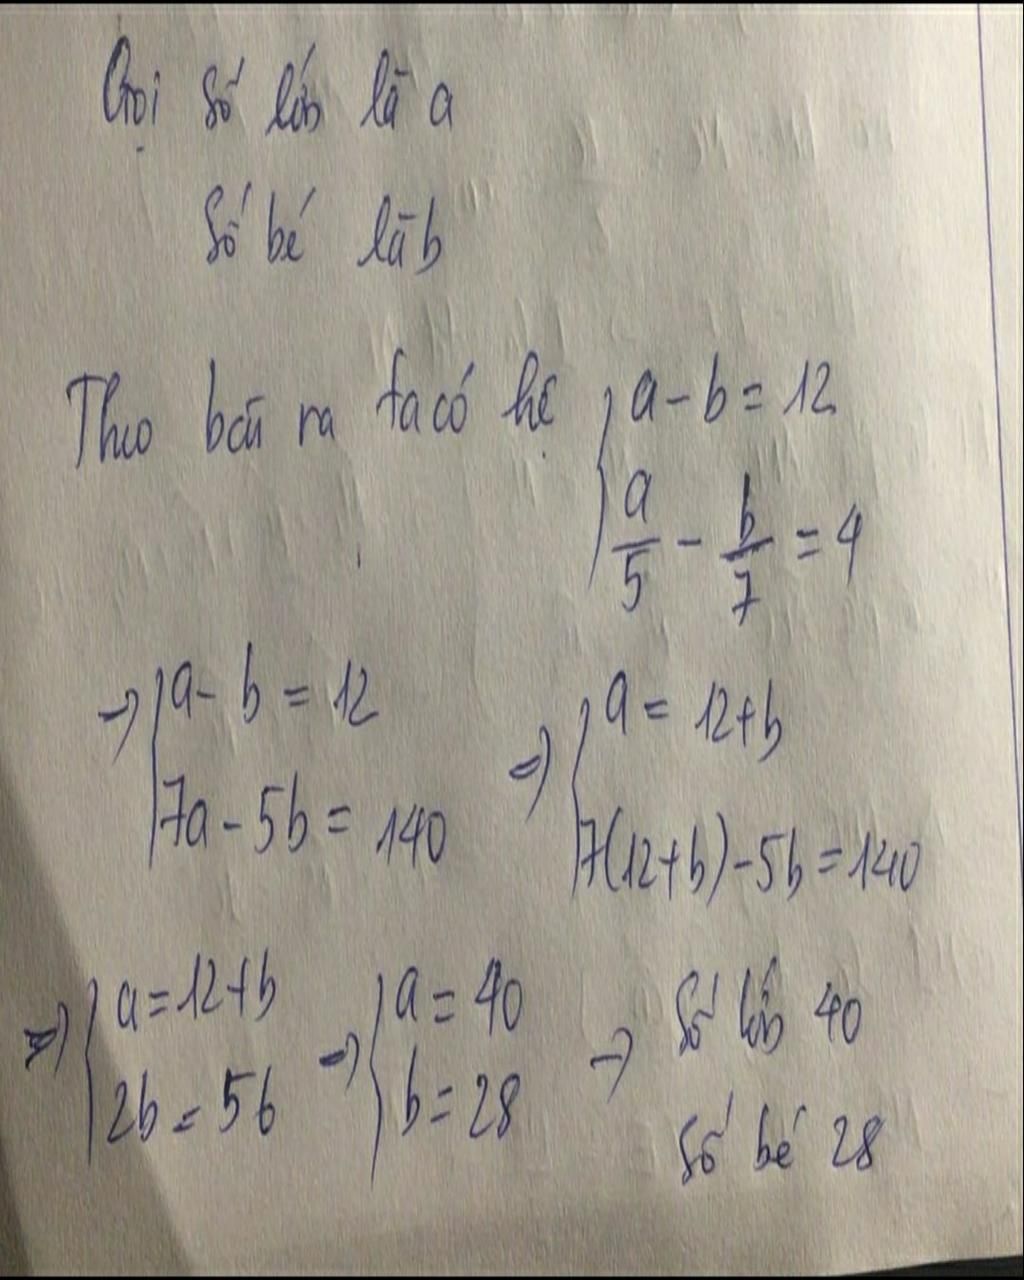 Gọi số lớn là a
Số bé là b
Theo bài ra ta có hệ { a - b = 12
a/5 - b/7 = 4
→ { a - b = 12
7a - 5b = 140
⇒ { a = 12+b
7(12+b) - 5b = 140
⇒ { a = 12+b
2b = 56
⇒ { a = 40
b = 28
→ Số lớn 40
Số bé 28